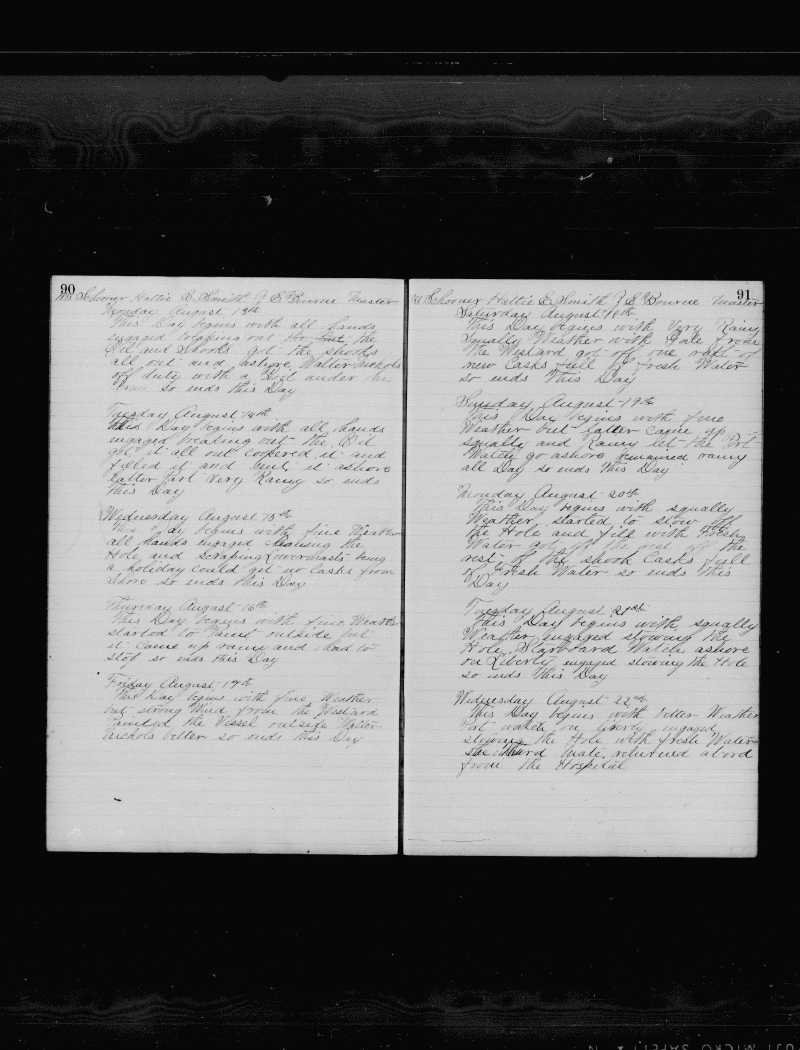 90
Schooner Hattie E. Smith J E Bourne Master
Monday August 13th
This Day begins with all hands
engaged breaking out the
Oil and Shooks got the shooks
all out and ashore Walter Nichols
off duty with a Boil under his
arm so ends this Day
Tuesday August 14th
This Day begins with all hands
engaged breaking out the Oil
got it all out coopered it and
filled it and sent it ashore
latter part Very Rainy so ends
this Day
Wednesday August 15th
This Day begins with fine Weather
all hands engaged cleaning the
Hole and Scraping Lowermasts being
a holiday could get no Casks from
Shore so ends this Day
Thursday August 16th
This Day begins with fine Weather
started to Paint outside but
it came up rainy and had to
Stop so ends this Day
Friday August 17th
This Day begins with fine Weather
but strong Wind from the Westard
Painted the Vessel outside Walter
Nichols better so ends this Day
91
Schooner Hattie E. Smith J E Bourne Master
Saturday August 18th
This Day begins with Very Rainy
Squally Weather with Gale from
the Westard got off one raft of
new Casks full of Fresh Water
so ends This Day
Sunday August 19th
This Day begins with fine
Weather but latter came up
squally and Rainy let the Port
Watch go ashore remained rainy
all Day so ends this Day
Monday August 20th
This Day begins with squally
Weather started to stow off
the Hole and fill with Fresh
Water got off the rest of the
rest of the shook Casks full
of Fresh Water so ends this
Day
Tuesday August 21st
This Day begins with squally
Weather engaged stowing the
Hole Starboard Watch ashore
on Liberty engaged stowing the Hole
so ends this Day
Wednesday August 22nd
This Day begins with better Weather
Port watch on liberty engaged
stowing the Hole with fresh Water
the third mate returned abord
from the Hospital